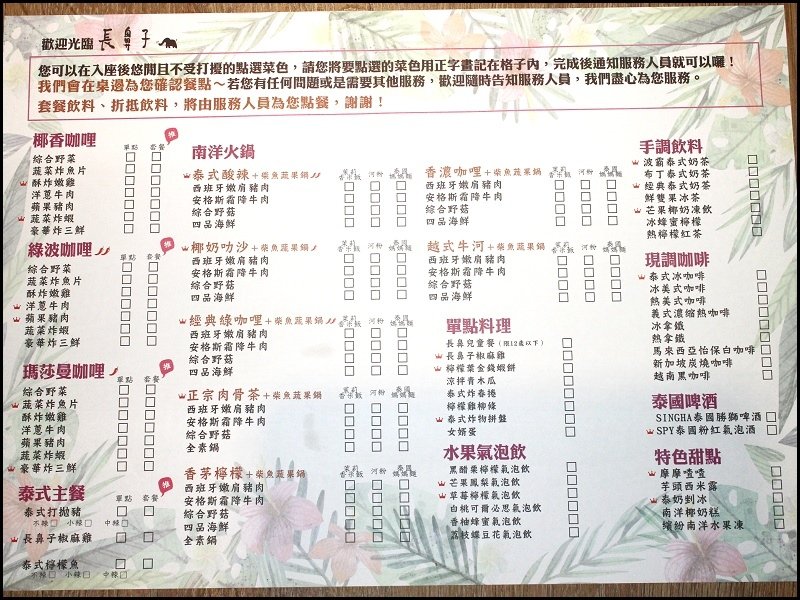 歡迎光臨 長鼻子
您可以在入座後悠閒且不受打擾的點選菜色，請您將要點選的菜色用正字畫記在格子內，完成後通知服務人員就可以囉！
我們會在桌邊為您確認餐點～若您有任何問題或是需要其他服務，歡迎隨時告知服務人員，我們盡心為您服務。
套餐飲料、折抵飲料，將由服務人員為您點餐，謝謝！
椰香咖哩 單點 套餐 推
綜合野菜
蔬菜炸魚片
酥炸嫩雞
洋蔥牛肉
蘋果豬肉
蔬菜炸蝦
豪華炸三鮮
綠波咖哩 單點 套餐
綜合野菜
蔬菜炸魚片
酥炸嫩雞
洋蔥牛肉
蘋果豬肉
蔬菜炸蝦
豪華炸三鮮
瑪莎曼咖哩 單點 套餐 推
綜合野菜
蔬菜炸魚片
酥炸嫩雞
洋蔥牛肉
蘋果豬肉
蔬菜炸蝦
豪華炸三鮮
泰式主餐 單點 套餐 推
泰式打拋豬
不辣 小辣 中辣
長鼻子椒麻雞
泰式檸檬魚
不辣 小辣 中辣
南洋火鍋
泰式酸辣＋柴魚蔬果鍋 茉莉香米飯 河粉 泰國媽媽麵
西班牙嫩肩豬肉
安格斯霜降牛肉
綜合野菇
四品海鮮
椰奶叻沙＋柴魚蔬果鍋 茉莉香米飯 河粉 泰國媽媽麵
西班牙嫩肩豬肉
安格斯霜降牛肉
綜合野菇
四品海鮮
經典綠咖哩＋柴魚蔬果鍋 茉莉香米飯 河粉 泰國媽媽麵
西班牙嫩肩豬肉
安格斯霜降牛肉
綜合野菇
四品海鮮
正宗肉骨茶＋柴魚蔬果鍋 茉莉香米飯 河粉 泰國媽媽麵
西班牙嫩肩豬肉
安格斯霜降牛肉
綜合野菇
全素鍋
香茅檸檬＋柴魚蔬果鍋 茉莉香米飯 河粉 泰國媽媽麵
西班牙嫩肩豬肉
安格斯霜降牛肉
綜合野菇
四品海鮮
全素鍋
香濃咖哩＋柴魚蔬果鍋 茉莉香米飯 河粉 泰國媽媽麵
西班牙嫩肩豬肉
安格斯霜降牛肉
綜合野菇
四品海鮮
越式牛河＋柴魚蔬果鍋 茉莉香米飯 河粉 泰國媽媽麵
西班牙嫩肩豬肉
安格斯霜降牛肉
綜合野菇
四品海鮮
單點料理
長鼻兒童餐（限12歲以下）
長鼻子椒麻雞
檸檬葉金錢蝦餅
涼拌青木瓜
泰式炸春捲
檸檬雞柳條
泰式炸物拼盤
女婿蛋
水果氣泡飲
黑醋栗檸檬氣泡飲
芒果鳳梨氣泡飲
草莓檸檬氣泡飲
白桃可爾必思氣泡飲
香柚蜂蜜氣泡飲
荔枝蝶豆花氣泡飲
手調飲料
波霸泰式奶茶
布丁泰式奶茶
經典泰式奶茶
鮮雙果冰茶
芒果椰奶凍飲
冰蜂蜜檸檬
熱檸檬紅茶
現調咖啡
泰式冰咖啡
冰美式咖啡
熱美式咖啡
義式濃縮熱咖啡
冰拿鐵
熱拿鐵
馬來西亞怡保白咖啡
新加坡炭燒咖啡
越南黑咖啡
泰國啤酒
SINGHA泰國勝獅啤酒
SPY泰國粉紅氣泡酒
特色甜點
摩摩喳喳
芋頭西米露
泰奶剉冰
南洋椰奶糕
繽紛南洋水果凍